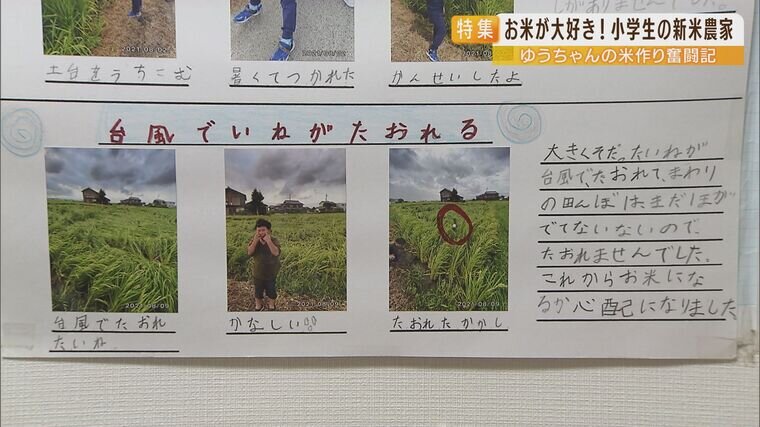 特集 お米が大好き!小学生の新米農家
ゆうちゃんの米作り奮闘記
2021/08/02
2021/08/02
2021/08/02
土台をうちこむ
暑くてつかれた
かんせいしたよ
台風でいねがたおれる
2021/08/09
2021/08/09
2021/08/09
台風でたおれ
たいね。
かなしい。
たおれたかかし
大きくそだったいねが
台風で、たおれて、まわり
の田んぼは、まだほが
でてないないので、
たおれませんでした。
これからお米にな
るか心配になりました